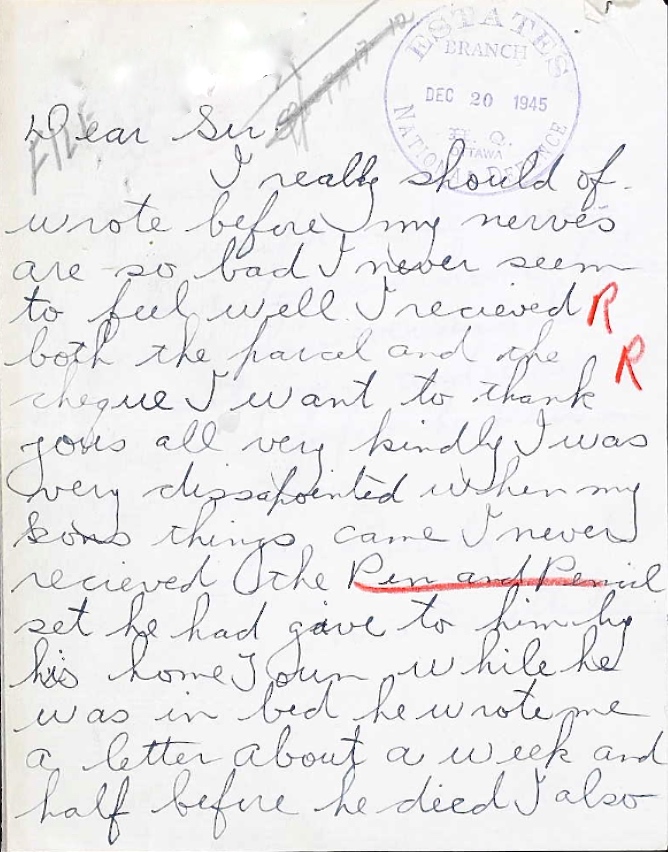 ESTATES
BRANCH
DEC 20 1945
H. Q.
OTTAWA
NATIONAL DEFENCE
FILE
Dear Sir.
I really should of
wrote before my nerves
are so bad I never seem
to feel well. I recieved R
both the parcel and the R
cheque I want to thank
yous all very kindly I was
very dissapointed when my
sons things came I never
recieved the Pen and Pencil
set he had gave to him by
his home Town while he
was in bed he wrote me
a letter about a week and
half before he died I also